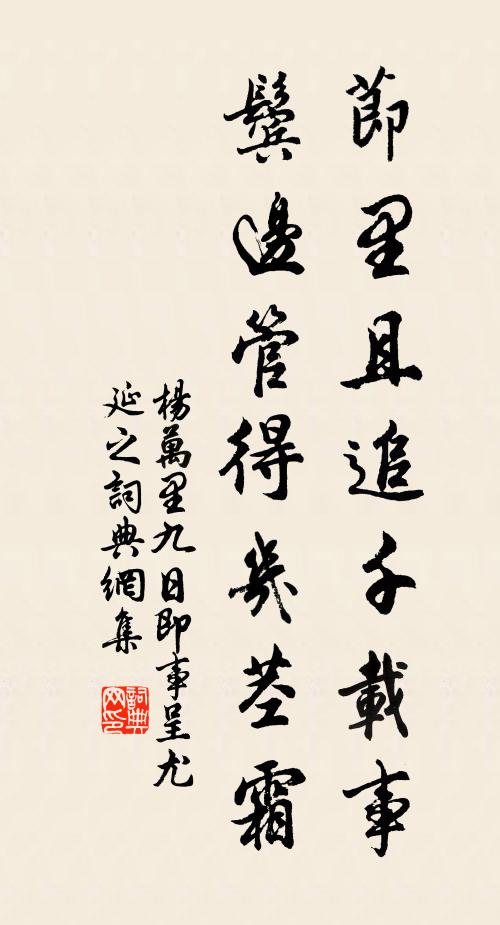 莭里且追千載事
鬢邊管得幾茎霜
楊萬里九日即事呈尤
延之詞典網集
詞典
网印